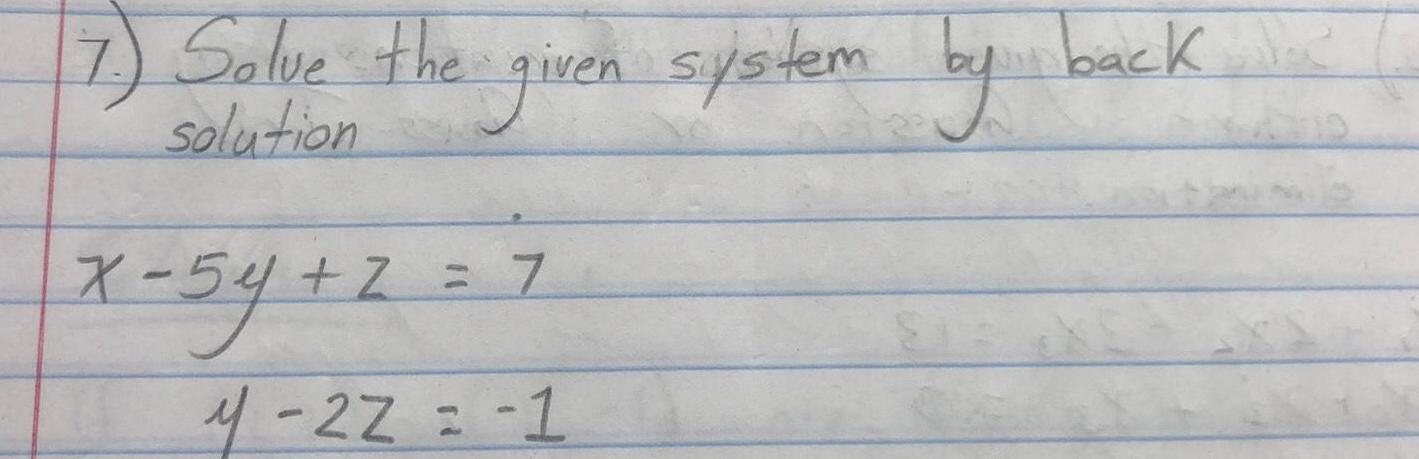 7.) Solve the given system by back
solution
x - 5y + z = 7
y - 2z = -1